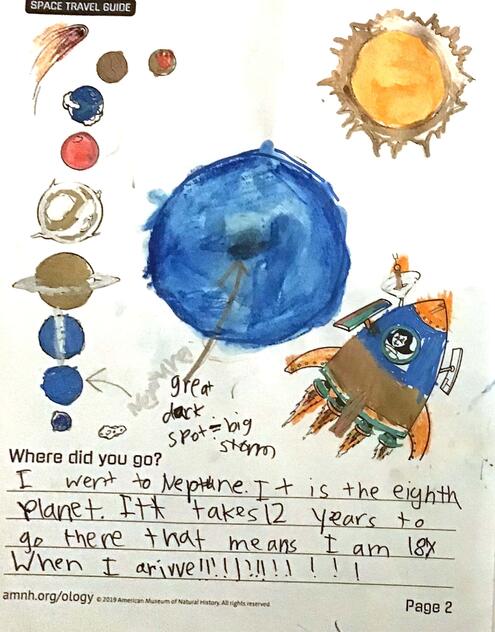 SPACE TRAVEL GUIDE
Neptune
great
dark
spot = big
storm
Where did you go?
I went to Neptune. It is the eighth
planet. Itt takes 12 years to
go there that means I am 18
When I arivve!!!!!!!!! ! ! !
amnh.org/ology © 2019 American Museum of Natural History. All rights reserved.
Page 2